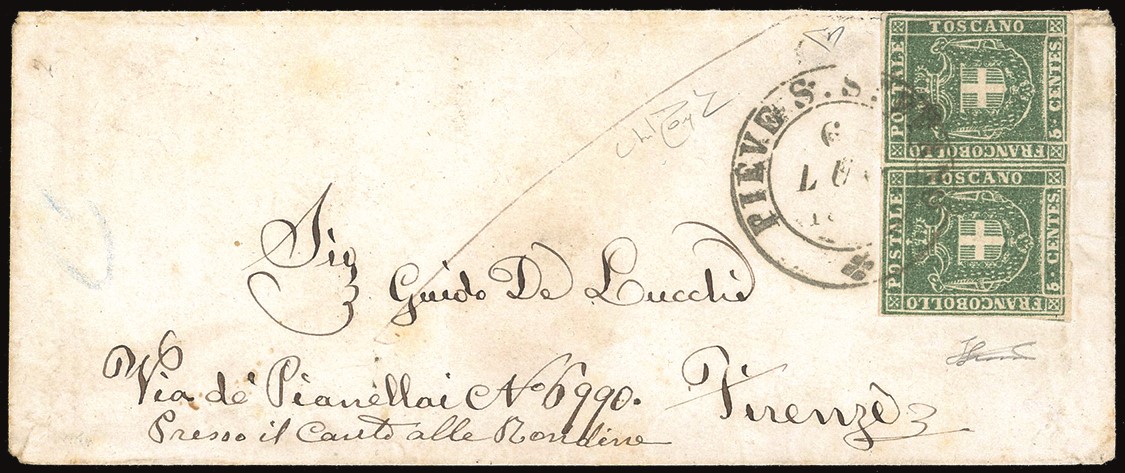 TOSCANO
POSTALE
5 CENTES
FRANCOBOLLO
TOSCANO
POSTALE
5 CENTES
FRANCOBOLLO
PIEVE S. S.
6
LU
18
Sig
Guido De Lucchi
Via de' Pianellai No 6990. Firenze
Presso il Canto alle Rondine